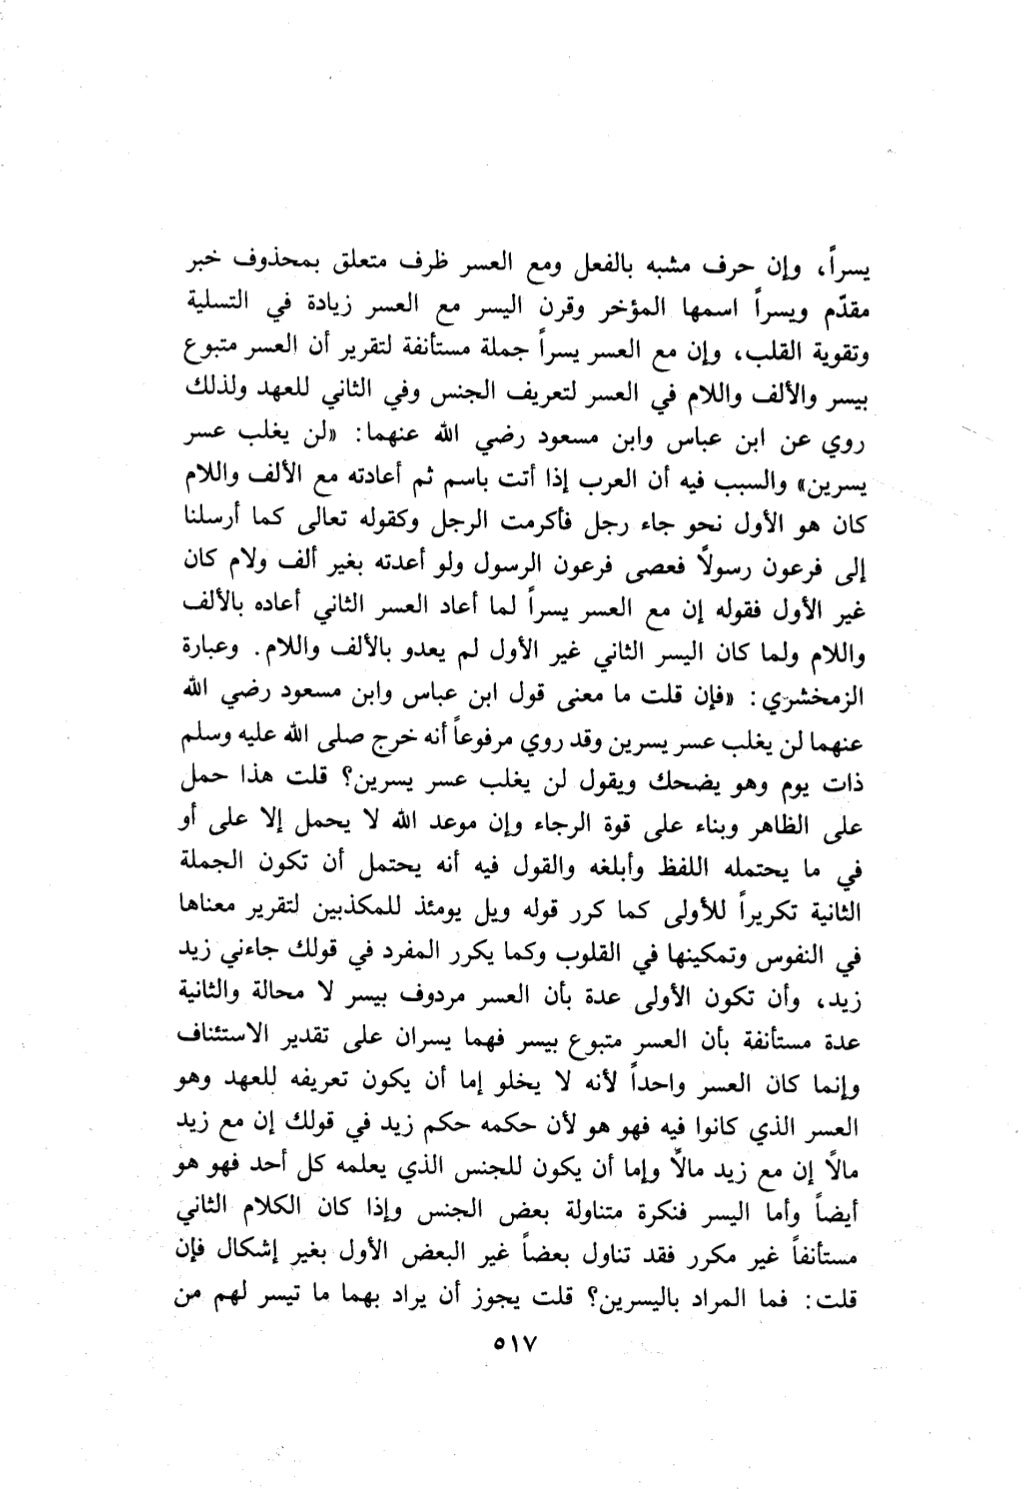 يسراً، وإن حرف مشبه بالفعل ومع العسر ظرف متعلق بمحذوف خبر
مقدّم ويسراً اسمها المؤخر وقرن اليسر مع العسر زيادة في التسلية
وتقوية القلب، وإن مع العسر يسراً جملة مستأنفة لتقرير أن العسر متبوع
بيسر والألف واللام في العسر لتعريف الجنس وفي الثاني للعهد ولذلك
روي عن ابن عباس وابن مسعود رضي الله عنهما: «لن يغلب عسر
يسرين» والسبب فيه أن العرب إذا أتت باسم ثم أعادته مع الألف واللام
كان هو الأول نحو جاء رجل فأكرمت الرجل وكقوله تعالى كما أرسلنا
إلى فرعون رسولاً فعصى فرعون الرسول ولو أعدته بغير ألف ولام كان
غير الأول فقوله إن مع العسر يسراً لما أعاد العسر الثاني أعاده بالألف
واللام ولما كان اليسر الثاني غير الأول لم يعدو بالألف واللام. وعبارة
الزمخشري: «فإن قلت ما معنى قول ابن عباس وابن مسعود رضي الله
عنهما لن يغلب عسر يسرين وقد روي مرفوعاً أنه خرج صلى الله عليه وسلم
ذات يوم وهو يضحك ويقول لن يغلب عسر يسرين؟ قلت هذا حمل
على الظاهر وبناء على قوة الرجاء وإن موعد الله لا يحمل إلا على أو
في ما يحتمله اللفظ وأبلغه والقول فيه أنه يحتمل أن تكون الجملة
الثانية تكريراً للأولى كما كرر قوله ويل يومئذ للمكذبين لتقرير معناها
في النفوس وتمكينها في القلوب وكما يكرر المفرد في قولك جاءني زيد
زيد، وأن تكون الأولى عدة بأن العسر مردوف بيسر لا محالة والثانية
عدة مستأنفة بأن العسر متبوع بيسر فهما يسران على تقدير الاستئناف
وإنما كان العسر واحداً لأنه لا يخلو إما أن يكون تعريفه للعهد وهو
العسر الذي كانوا فيه فهو هو لأن حكمه حكم زيد في قولك إن مع زيد
مالاً إن مع زيد مالاً وإما أن يكون للجنس الذي يعلمه كل أحد فهو هو
أيضاً وأما اليسر فنكرة متناولة بعض الجنس وإذا كان الكلام الثاني
مستأنفاً غير مكرر فقد تناول بعضاً غير البعض الأول بغير إشكال فإن
قلت: فما المراد باليسرين؟ قلت يجوز أن يراد بهما ما تيسر لهم من
٥١٧